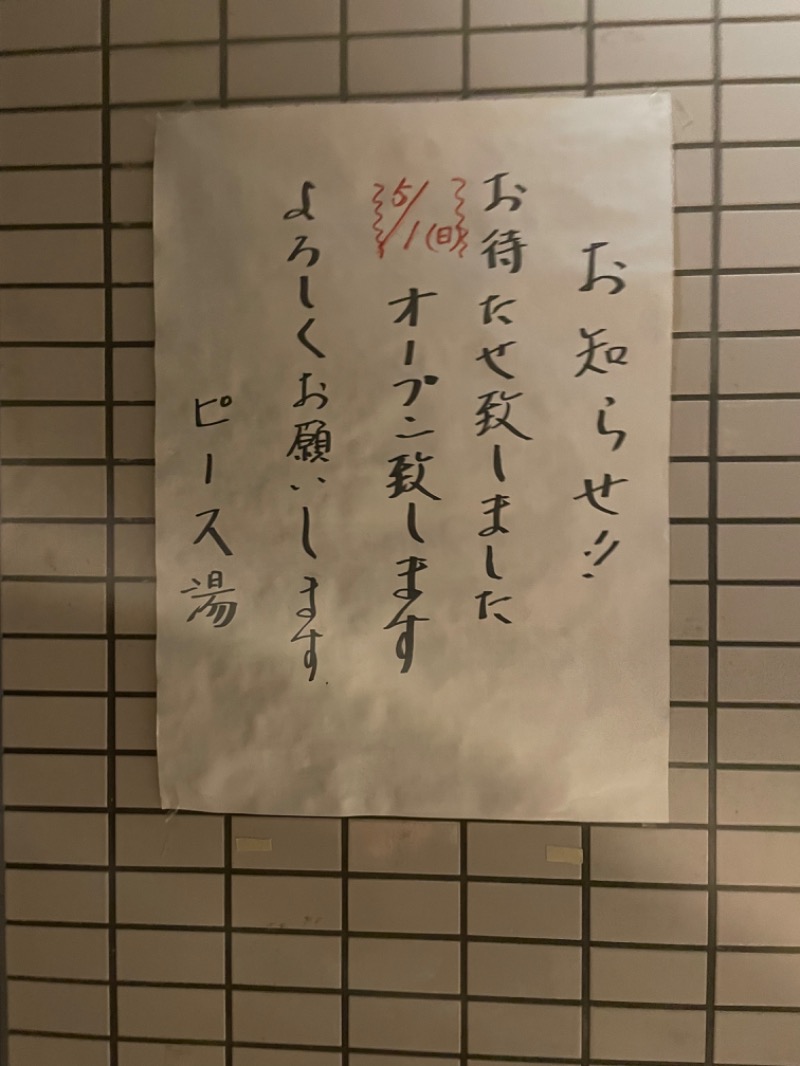 お知らせ!!
お待たせ致しました
5/1(日)オープン致します
よろしくお願いします
ピース湯